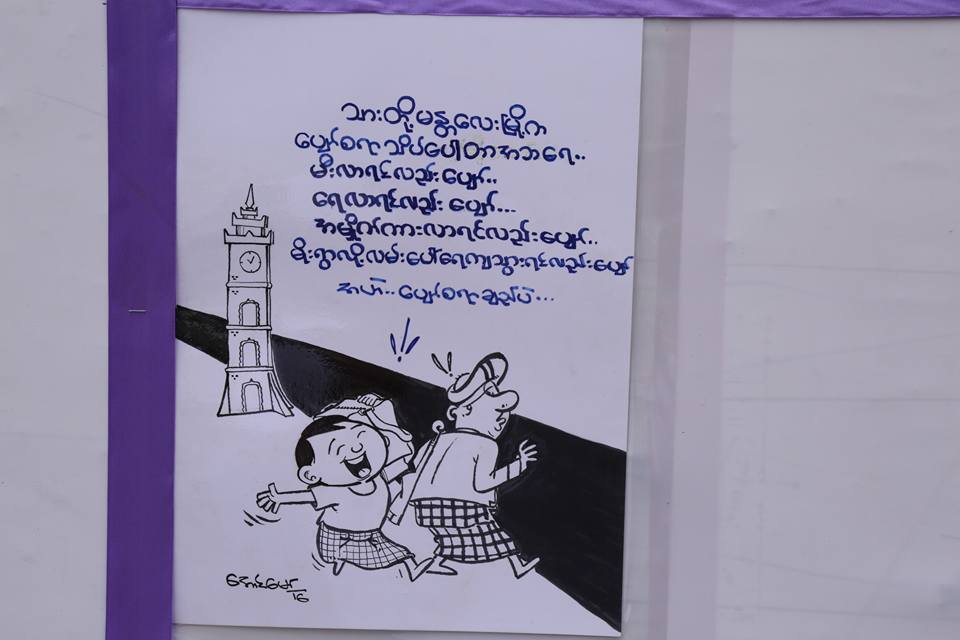 သားတို့မန္တလေးမြို့က
ပျော်စရာသိပ်ပေါတာအဘရေ..
မီးလာရင်လည်းပျော်..
ရေလာရင်လည်း ပျော်...
အမှိုက်ကားလာရင်လည်းပျော်..
မိုးရွာလို့လမ်းပေါ်ရေကျသွားရင်လည်းပျော်
အဟား.. ပျော်စရာချည်ပဲ...
16